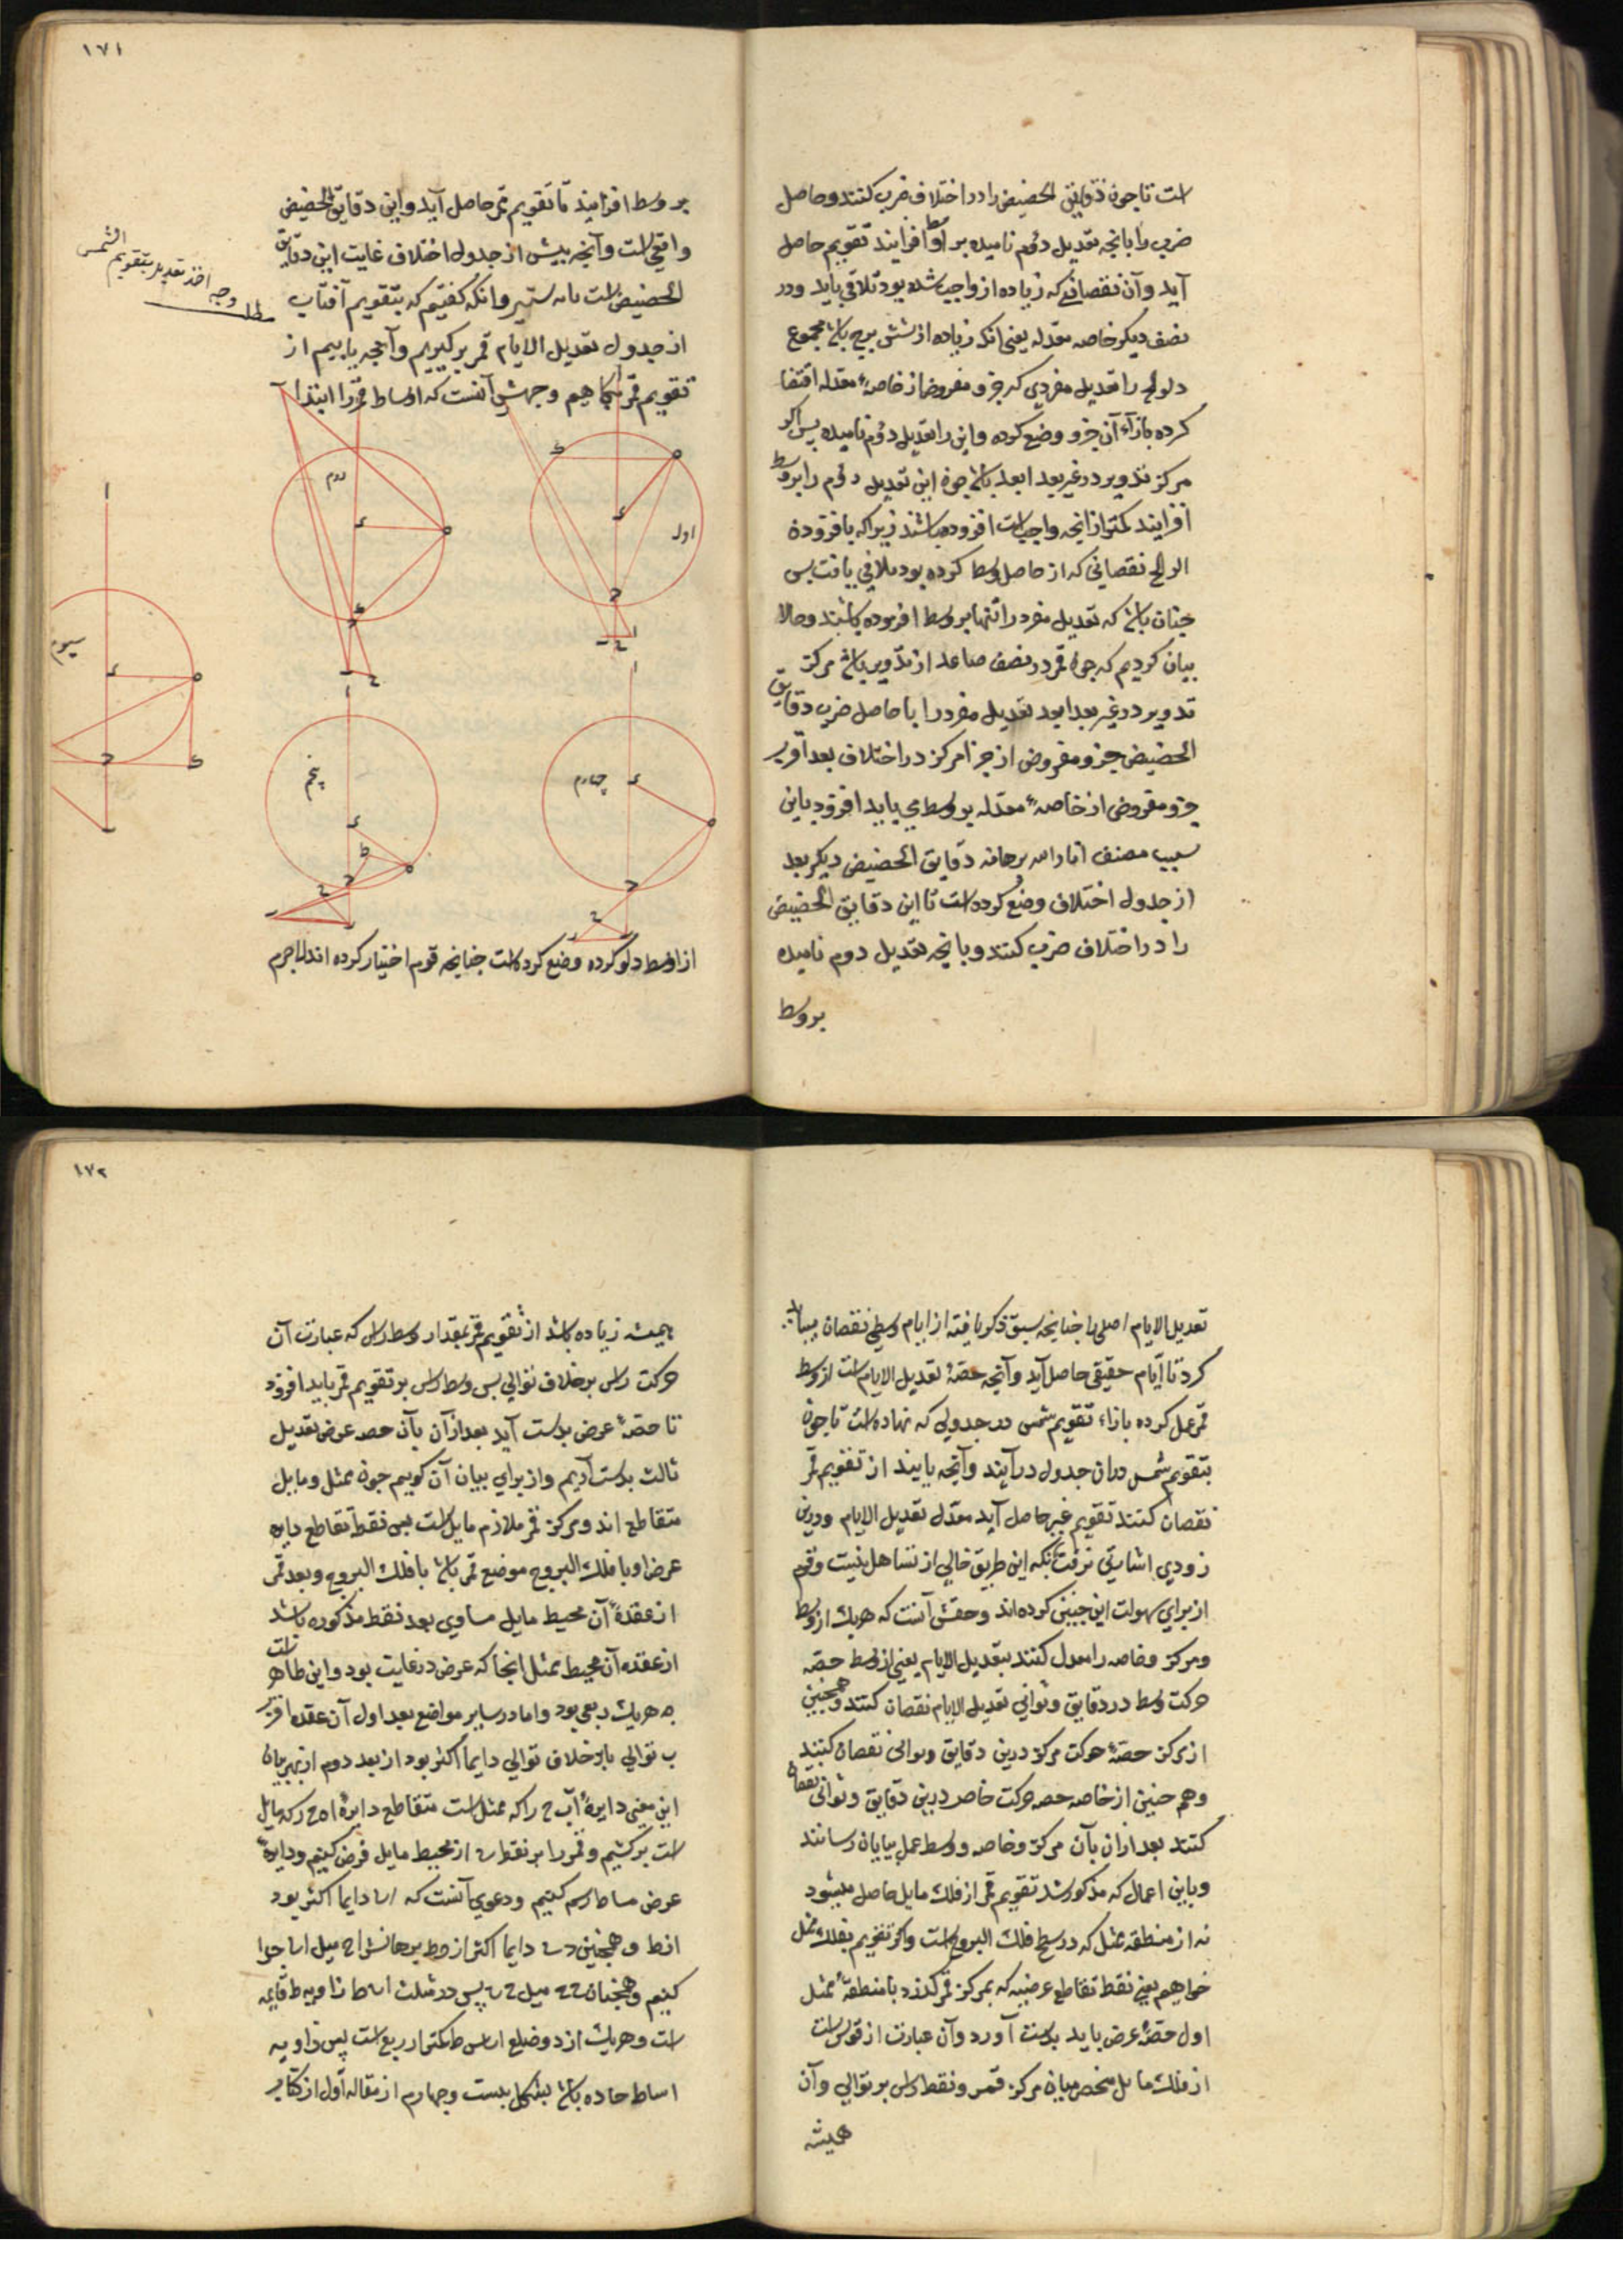 است تا چون دقایق الحضیض را در اختلاف ضرب کنند و حاصل
ضرب را بانچه تعدیل دوم نامیده بر وسط افزایند تقویم حاصل
آید و آن نقصانی که زیاده از واجب شده بود تلافی یابد و در
نصف دیگر خاصه معدله یعنی انک زیاده از شش برج باشد مجموع
را تعدیل مفردی که جزو مفروض از خاصهٔ معدله اقتضا
کرده بازآء آن جزو وضع کرده و این را تعدیل دوم نامیده پس اکر
مرکز تدویر در غیر بعد ابعد باشد چون این تعدیل دوم را بر وسط
افزایند کمتر از انچه واجبست افزوده باشند زیراکه بافزودن
نقصانی که از حاصل وسط کرده بود تلافی یافت پس
چنان باشد که تعدیل مفرد را تنها بر وسط افزوده باشند و حالا
بیان کردیم که چون قمر در نصف صاعد از تدویر باشد مرکز
تدویر در غیر بعد ابعد تعدیل مفرد را با حاصل ضرب دقایق
الحضیض جزو مفروض از جزا مرکز در اختلاف بعد اقرب
جزو مفروض از خاصهٔ معدله بر وسط می باید افزود باین
سبب مصنف انار الله برهانه دقایق الحضیض دیکر بعد
از جدول اختلاف وضع کرده است تا این دقایق الحضیض
را در اختلاف ضرب کنند و بانچه تعدیل دوم نامیده
بر وسط
۱۷۱
بر وسط افزایند تا تقویم قمر حاصل آید و این دقایق الحضیض
واقعی است و آنچه پیش از جدول اختلاف غایت این دقایق
الحضیض است و انکه کفتیم که بتقویم آفتاب
از جدول تعدیل الایام قمر برکیریم و آنچه یابیم از
تقویم قمر بکاهیم و جهش آنست که اوساط قمر را ابتدا
وجه اخذ تعدیل بتقویم الشمس
اول
دوم
سیوم
چهارم
پنجم
از اوسط دلو کرده وضع کرده است چنانچه قوم اختیار کرده اند لاجرم
تعدیل الایام اصلی را چنانچه سبق ذکر یافته از ایام وسطی نقصان
کرد تا ایام حقیقی حاصل آید و آنچه حصهٔ تعدیل الایام است از وسط
قمر عمل کرده بازاء تقویم شمس در جدولی که نهاده است تا چون
بتقویم شمس دران جدول درآیند و آنچه یابند از تقویم قمر
نقصان کنند تقویم غیر حاصل آید معدل تعدیل الایام و درین
زودی اشارتی نرفت بانکه این طریق خالی از تساهل نیست و قوم
از برای سهولت این چنین کرده اند و حقش آنست که هریک از وسط
و مرکز و خاصه را معدل کنند بتعدیل الایام یعنی از وسط حصهٔ
حرکت وسط در دقایق و ثوانی تعدیل الایام نقصان کنند و همچنین
از مرکز حصهٔ حرکت مرکز درین دقایق و ثوانی نقصان کنند
و هم چنین از خاصه حصه حرکت خاصه درین دقایق و ثوانی نقصان
کنند بعد ازان بآن مرکز و خاصه و وسط عمل بپایان رسانند
و باین اعمال که مذکور شد تقویم قمر از فلک مایل حاصل میشود
نه از منطقه ممثل که در سطح فلک البروج است و اکر تقویم بفلک ممثل
خواهیم یعنی نقطه تقاطع عرضیه که بمرکز قمر کذرد با منطقهٔ ممثل
اول حصهٔ عرض باید بدست آورد و آن عبارت از قوس است
از فلک مایل منحصر میان مرکز قمر و نقطه راس بر توالی و آن
همیشه
۱۷۲
همیشه زیاده باشد از تقویم قمر بمقدار وسط راس که عبارت آن
حرکت راس بر خلاف توالی پس وسط راس بر تقویم قمر باید افزود
تا حصهٔ عرض بدست آید بعد از آن بآن حصه عرض تعدیل
ثالث بدست آریم و از برای بیان آن کوییم چون ممثل و مایل
متقاطع اند و مرکز قمر ملازم مایل است پس نقطه تقاطع دایره
عرض او با فلک البروج موضع قمر باشد با فلک البروج و بعد قمر
از عقدهٔ آن محیط مایل مساوی بعد نقطه مذکوره باشد
از عقده آن محیط ممثل انجا که عرض در غایت بود و این ظاهر است
چه هریک ربعی بود و اما در سایر مواضع بعد اول آن عقده اقرب
ب توالی یا بر خلاف توالی دایما اکثر بود از بعد دوم از بهر بیان
این معنی دایرهٔ آ ب ج را که ممثل است متقاطع دایرهٔ ا ه ج ر که مایل
است برکشیم و قمر را بر نقطه ر از محیط مایل فرض کنیم و دایرهٔ
عرض رسم کنیم و دعوی آنست که ا ر دایما اکثر بود
از ا ط و همچنین ر دایما اکثر از ج ط برهانش ا ج میل ا ر ج را
کنیم و همچنان میل پس در مثلث ا ر ط زاویه ط قایمه
است و هریک از دو ضلع ا ر ر ط کمتر از ربع است پس زاویه
ا ر ط حاده باشد بشکل بیست و چهارم از مقاله اول از کتاب